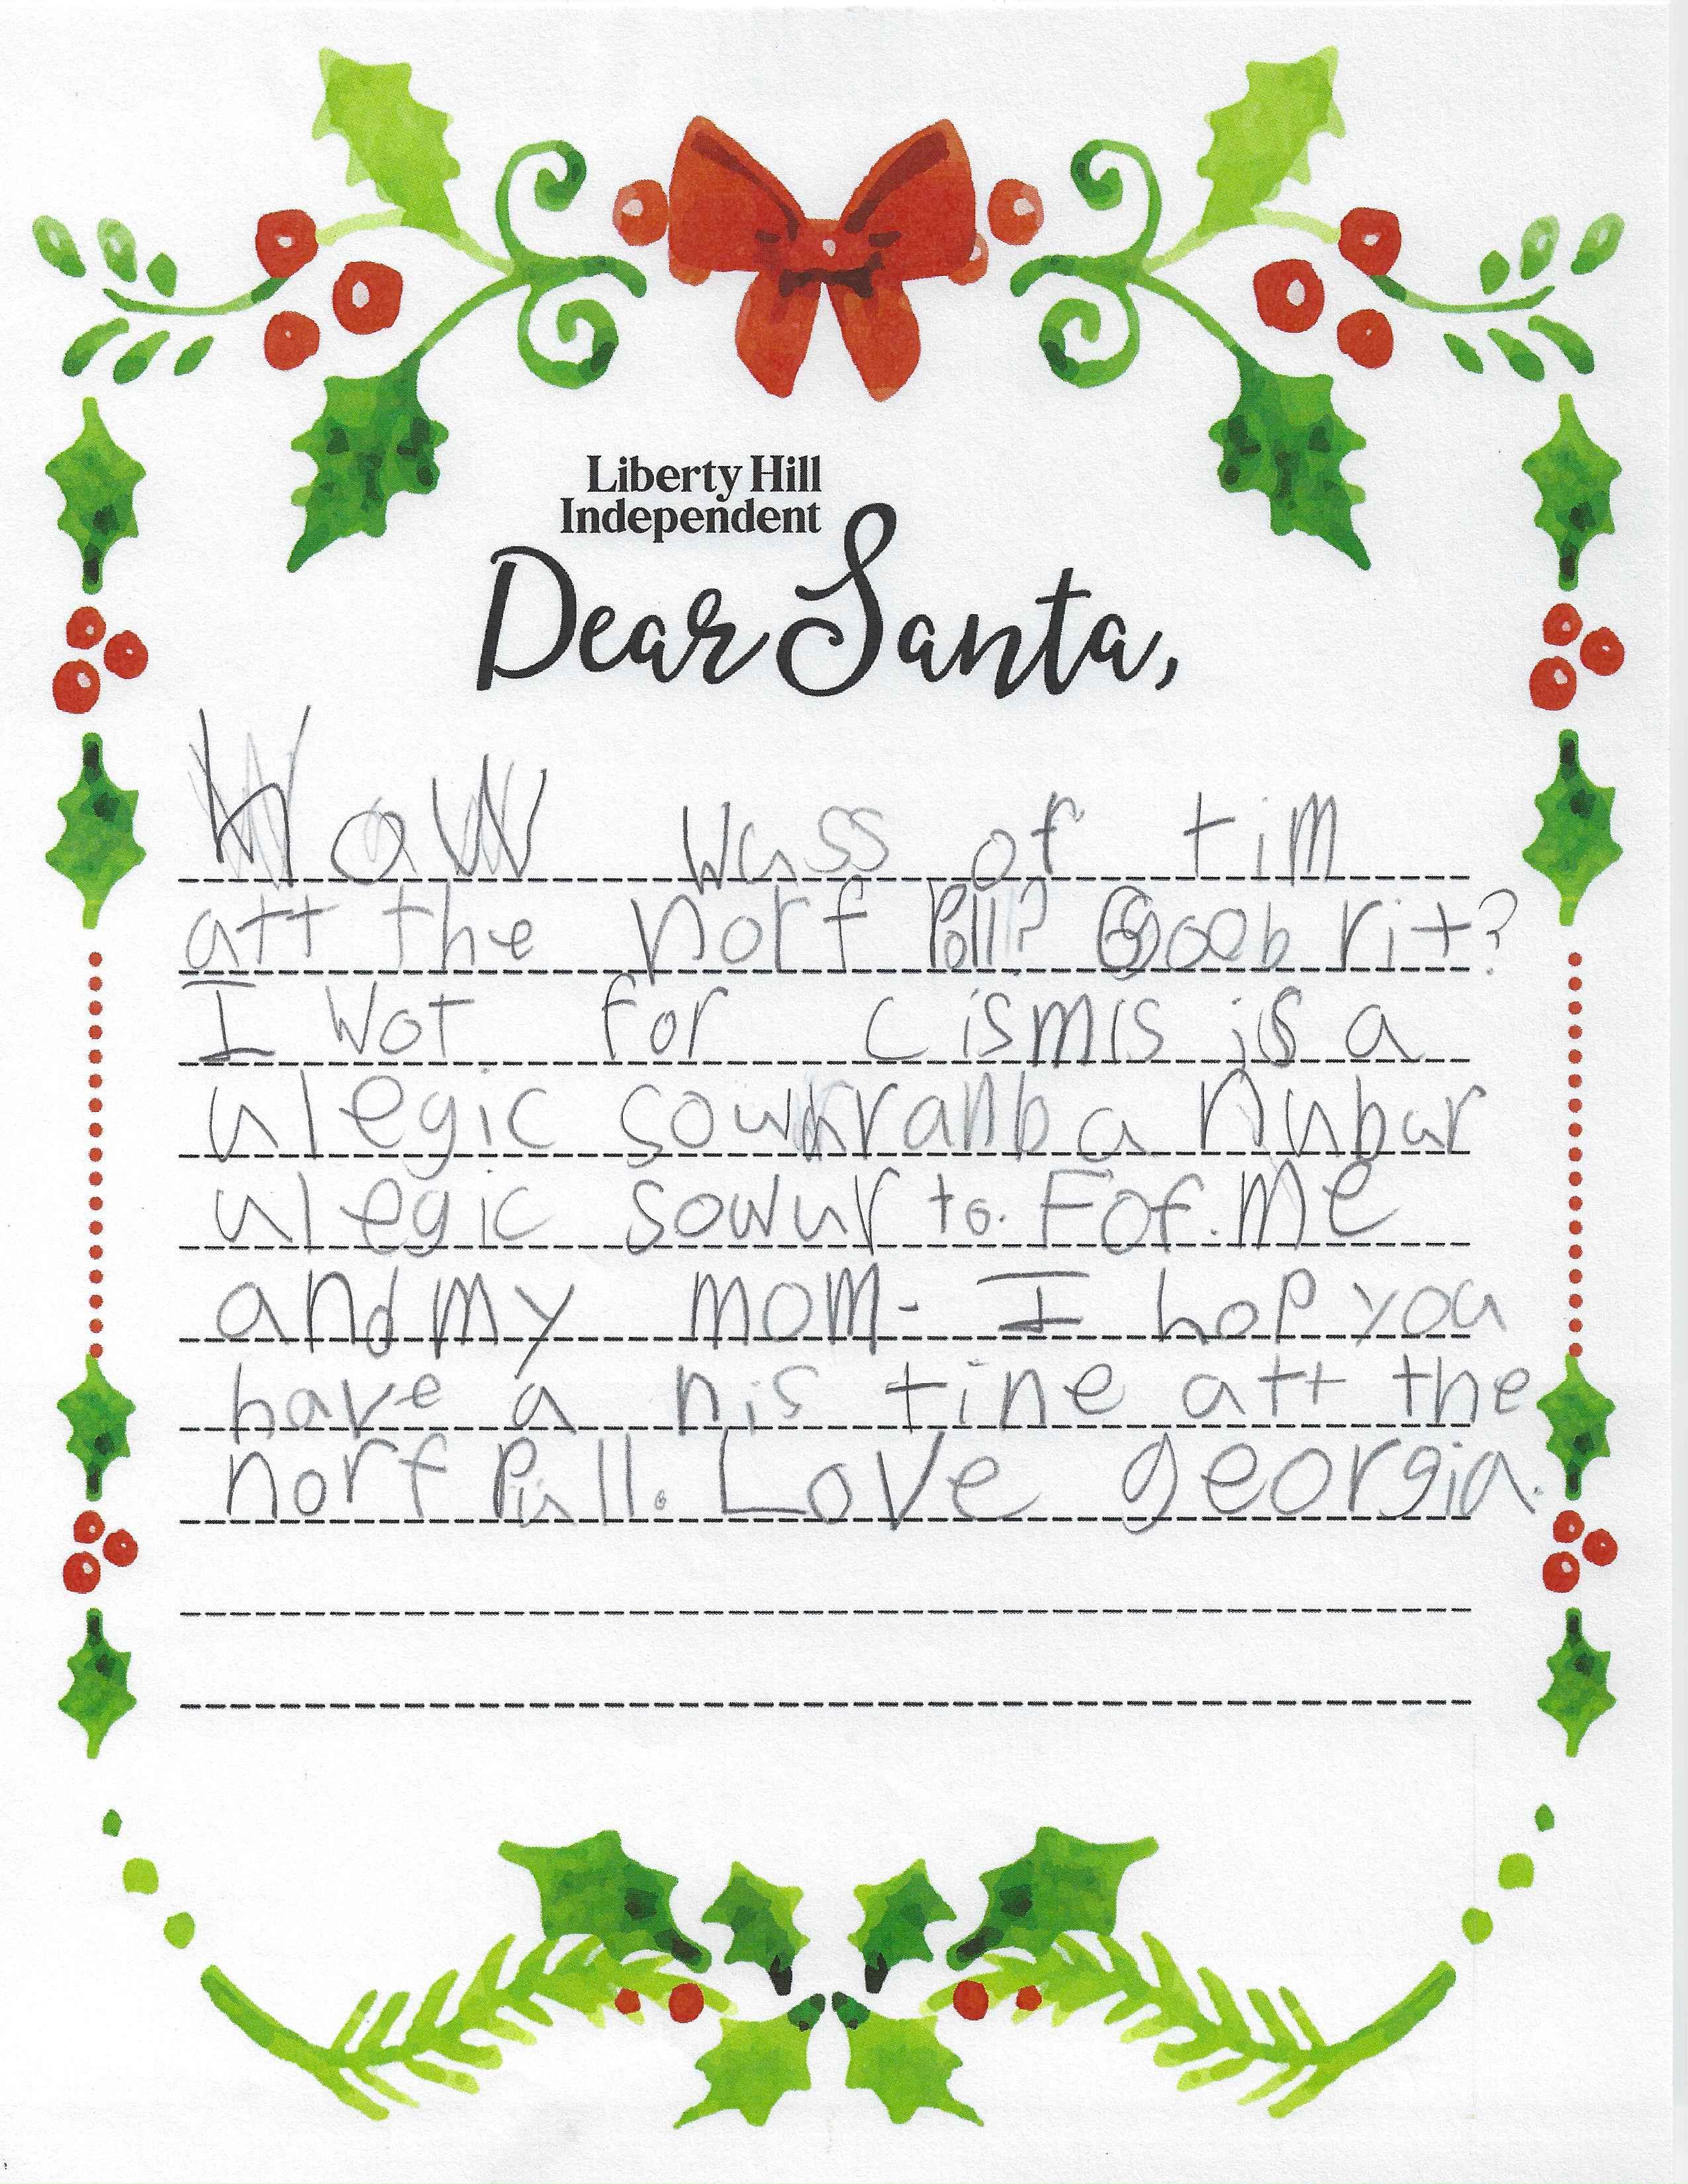 Liberty Hill
Independent
Dear Santa,
How wuss of tim
att the norf Poll? Goeb rit?
I wot for cismis is a
ulegic sowur anb a nubur
ulegic sowur to. For. me
and my mom- I hop you
have a nis tine att the
norf Pull. Love georgia.